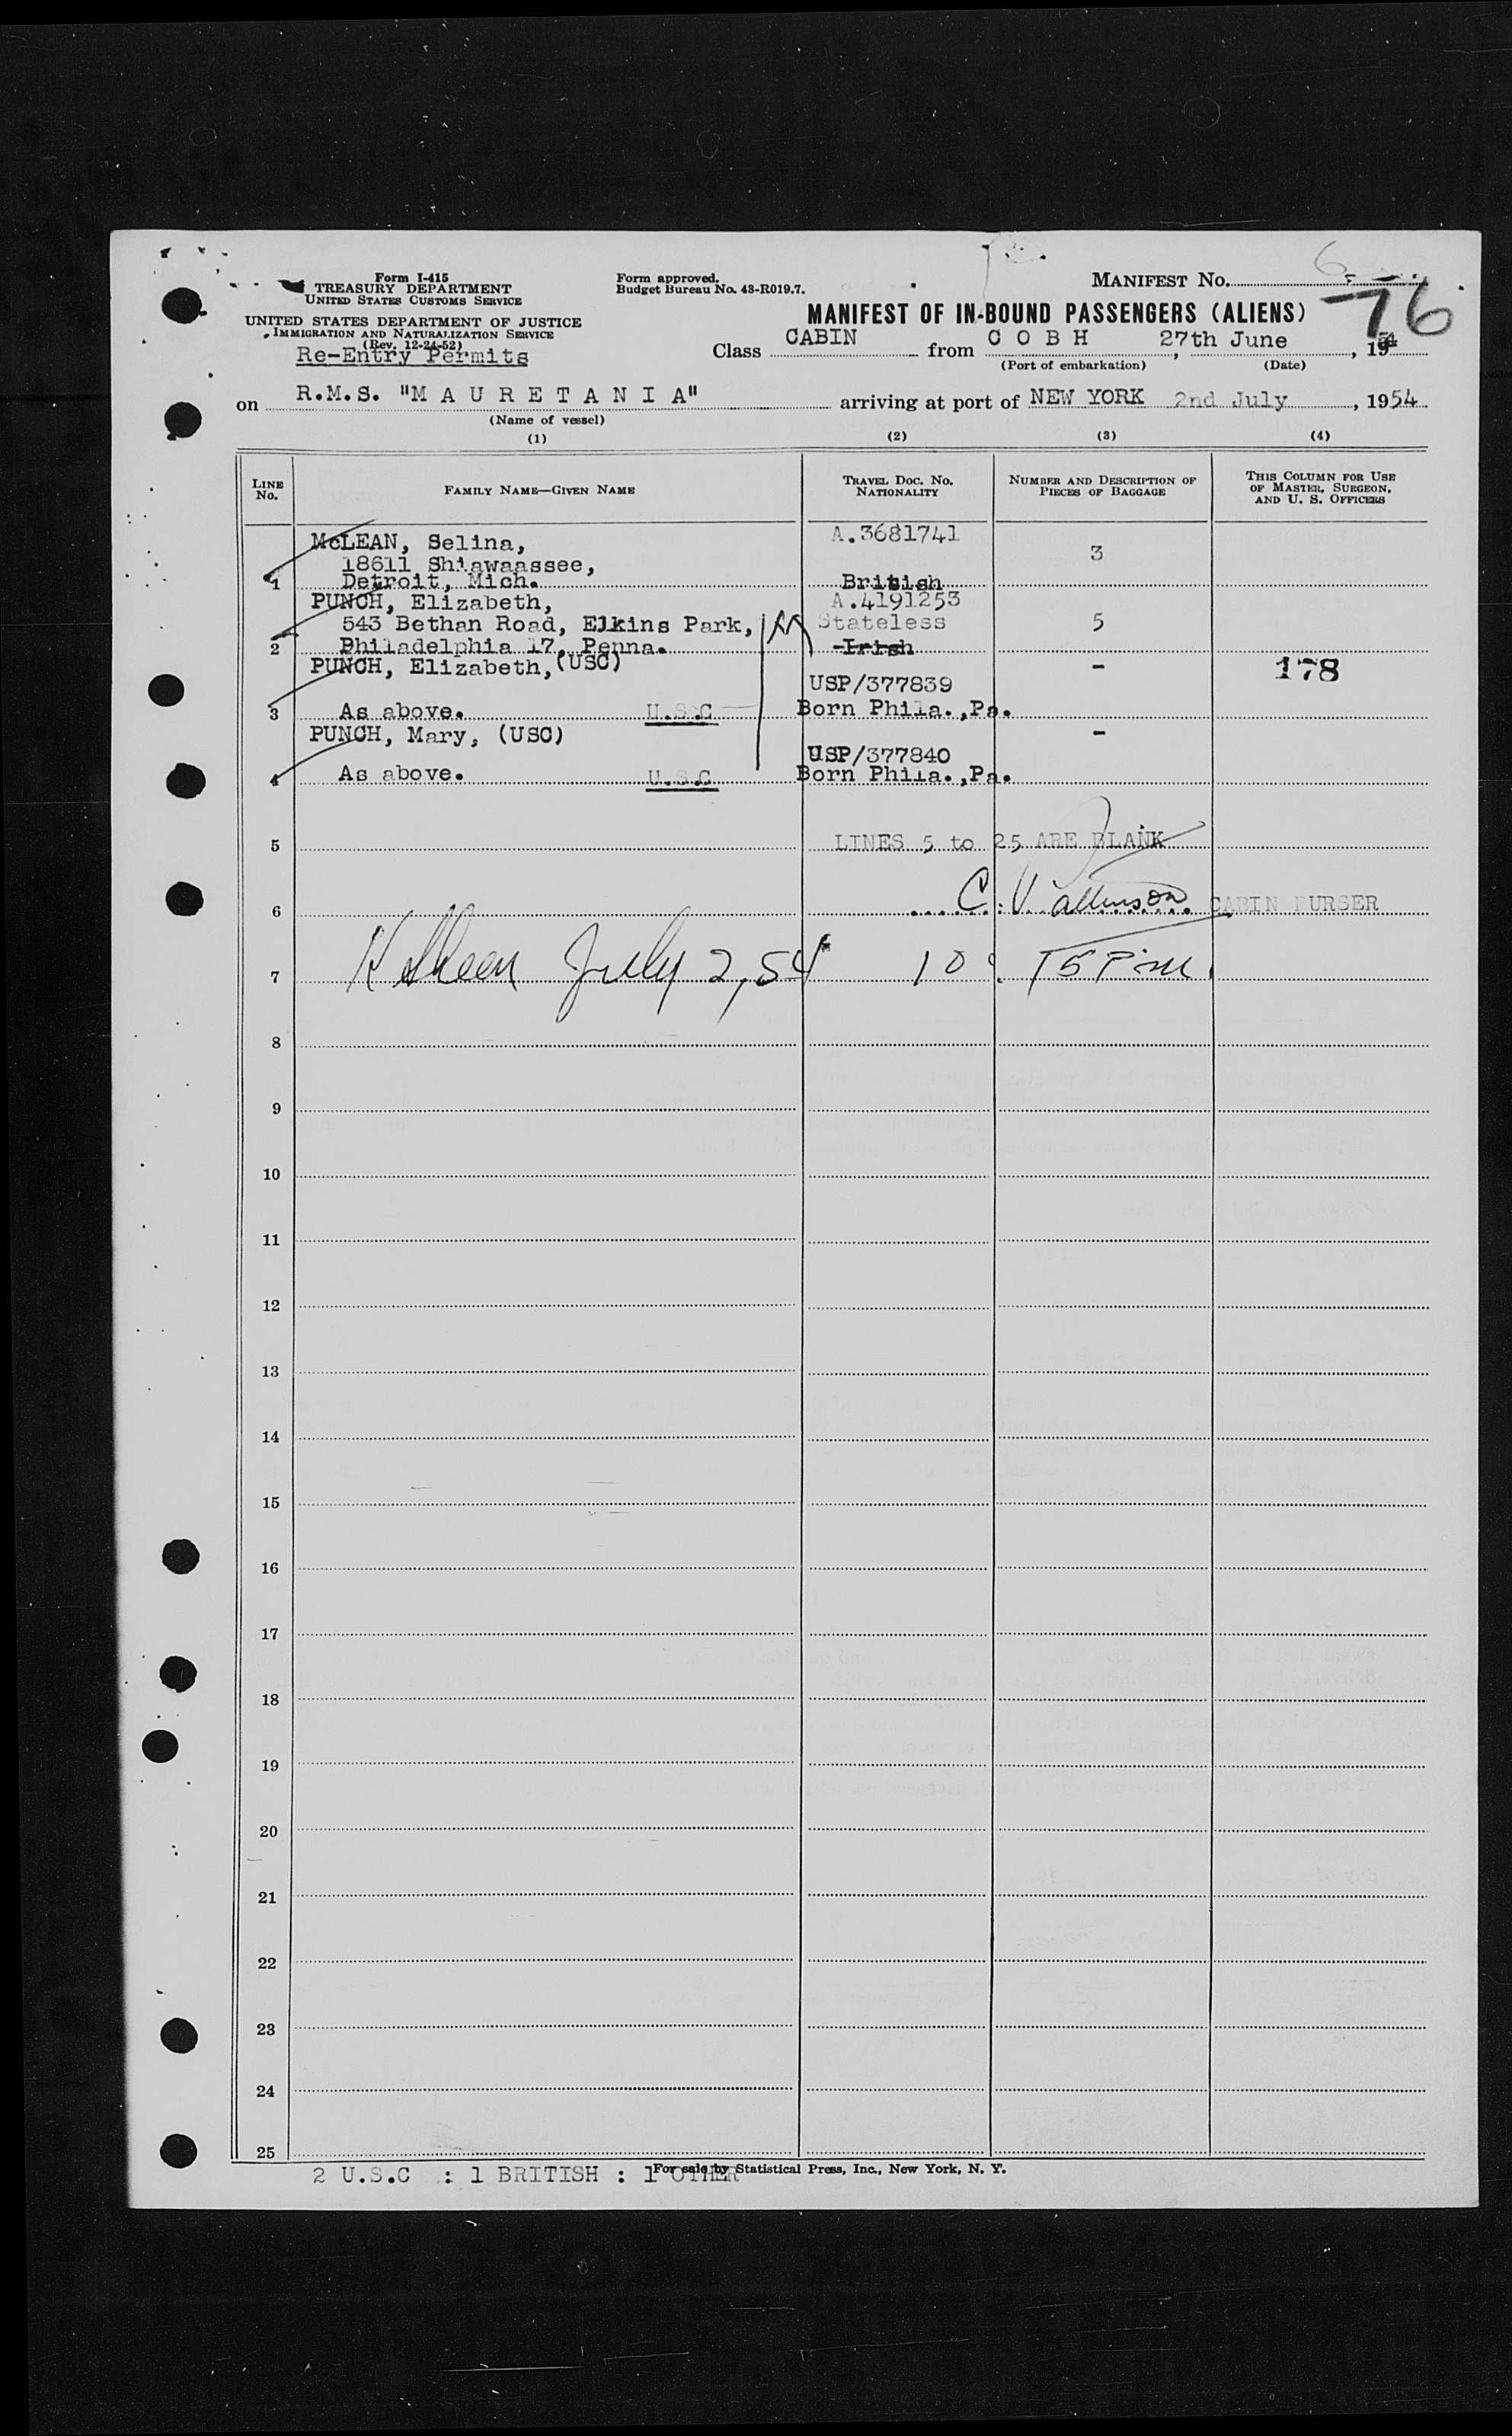 Form I-415
TREASURY DEPARTMENT
UNITED STATES CUSTOMS SERVICE
UNITED STATES DEPARTMENT OF JUSTICE
IMMIGRATION AND NATURALIZATION SERVICE
(Rev. 12-24-52)
Re-Entry Permits
Form approved.
Budget Bureau No. 43-R019.7.
MANIFEST No. 6
76
MANIFEST OF IN-BOUND PASSENGERS (ALIENS)
Class CABIN from C O B H 27th June, 1954
(Port of embarkation) (Date)
on R.M.S. "M A U R E T A N I A" arriving at port of NEW YORK 2nd July, 1954
(Name of vessel)
(1) (2) (3) (4)
LINE No. FAMILY NAME—GIVEN NAME TRAVEL DOC. NO. NATIONALITY NUMBER AND DESCRIPTION OF PIECES OF BAGGAGE THIS COLUMN FOR USE OF MASTER, SURGEON, AND U. S. OFFICERS
McLEAN, Selina, A.3681741
18611 Shiawaassee, 3
1 Detroit, Mich. British
PUNCH, Elizabeth, A.4191253
543 Bethan Road, Elkins Park, Stateless 5
2 Philadelphia 17, Penna. Irish
PUNCH, Elizabeth, (USC) - 178
USP/377839
3 As above. U.S.C Born Phila.,Pa.
PUNCH, Mary, (USC) -
USP/377840
4 As above. U.S.C Born Phila.,Pa.
5 LINES 5 to 25 ARE BLANK
6 CABIN PURSER
7 July 2, 54 10: 15 P.M.
8
9
10
11
12
13
14
15
16
17
18
19
20
21
22
23
24
25
2 U.S.C : 1 BRITISH : 1 OTHER
For sale by Statistical Press, Inc., New York, N. Y.